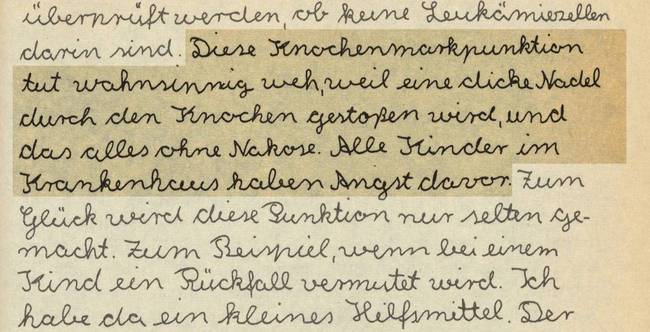 überprüft werden, ob keine Leukämiezellen
darin sind. Diese Knochenmarkpunktion
tut wahnsinnig weh, weil eine dicke Nadel
durch den Knochen gestoßen wird, und
das alles ohne Nakose. Alle Kinder im
Krankenhaus haben Angst davor. Zum
Glück wird diese Punktion nur selten ge-
macht. Zum Beispiel, wenn bei einem
Kind ein Rückfall vermutet wird. Ich
habe da ein kleines Hilfsmittel. Der